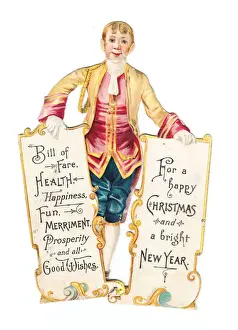 Bill of
Fare.
HEALTH.
Happiness.
Fun.
MERRIMENT.
Prosperity
and all
Good Wishes.
For a
happy
CHRISTMAS
and a
bright
NEW YEAR.